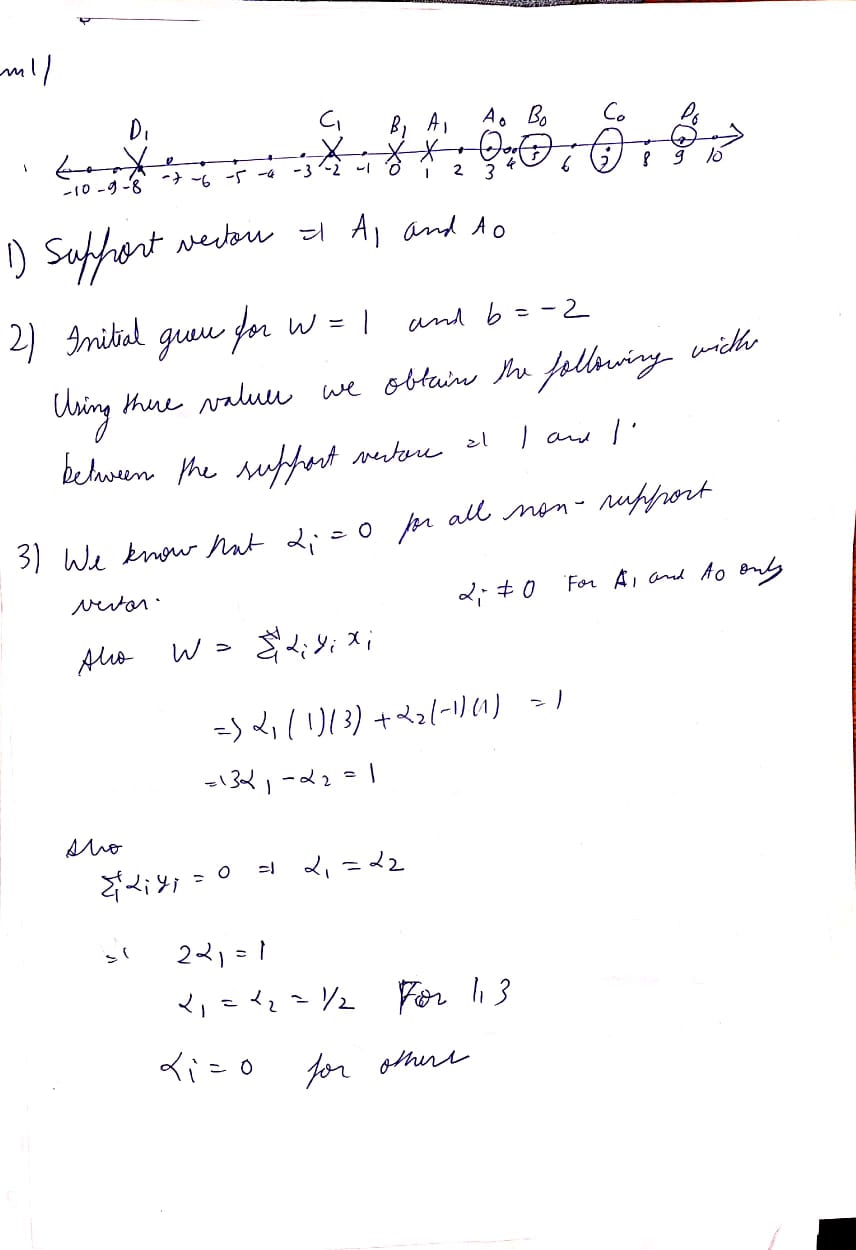 m1/
D₁ C₁ B₁ A₁ A₀ B₀ C₀ D₀
-10 -9 -8 -7 -6 -5 -4 -3 -2 -1 0 1 2 3 4 5 6 7 8 9 10
1) Support vectors ⇒ A₁ and A₀
2) Initial guess for W = 1 and b = -2
Using these values we obtain the following width
between the support vectors ⇒ 1 and 1.
3) We know that αᵢ = 0 for all non-support
vector. αᵢ ≠ 0 For A₁ and A₀ only
Also W = Σαᵢyᵢxᵢ
⇒ α₁(1)(3) + α₂(-1)(1) = 1
⇒ 3α₁ - α₂ = 1
Also
Σαᵢyᵢ = 0 ⇒ α₁ = α₂
⇒ 2α₁ = 1
α₁ = α₂ = 1/2 For 1, 3
αᵢ = 0 for others